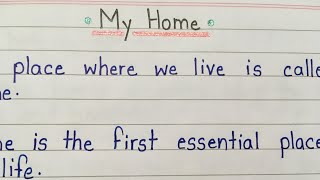 My Home
place where we live is calle
e.
e is the first essential place
life.